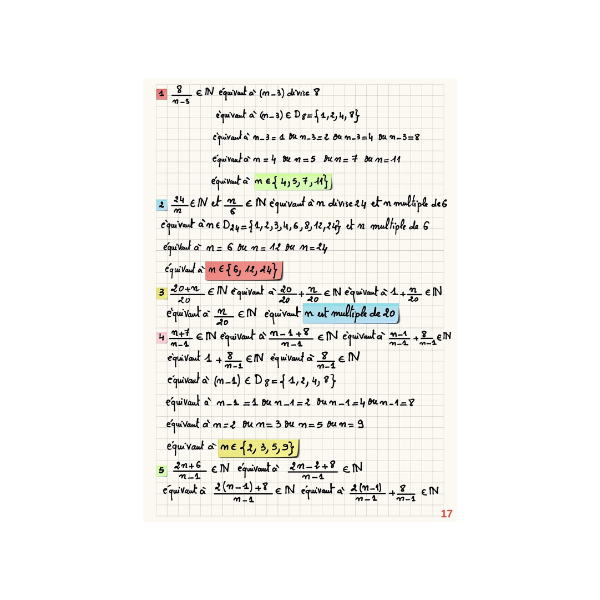 1 8/(n-3) ∈ ℕ équivaut à (n-3) divise 8
équivaut à (n-3) ∈ D8={1,2,4,8}
équivaut à n-3=1 ou n-3=2 ou n-3=4 ou n-3=8
équivaut à n=4 ou n=5 ou n=7 ou n=11
équivaut à n ∈{4,5,7,11}
2 24/n ∈ ℕ et n/6 ∈ ℕ équivaut à n divise 24 et n multiple de 6
équivaut à n ∈ D24={1,2,3,4,6,8,12,24} et n multiple de 6
équivaut à n=6 ou n=12 ou n=24
équivaut à n ∈{6,12,24}
3 (20+n)/20 ∈ ℕ équivaut à 20/20 + n/20 ∈ ℕ équivaut à 1+n/20 ∈ ℕ
équivaut à n/20 ∈ ℕ équivaut n est multiple de 20
4 (n+7)/(n-1) ∈ ℕ équivaut à (n-1+8)/(n-1) ∈ ℕ équivaut à (n-1)/(n-1) + 8/(n-1) ∈ ℕ
équivaut 1+8/(n-1) ∈ ℕ équivaut à 8/(n-1) ∈ ℕ
équivaut à (n-1) ∈ D8={1,2,4,8}
équivaut à n-1=1 ou n-1=2 ou n-1=4 ou n-1=8
équivaut à n=2 ou n=3 ou n=5 ou n=9
équivaut à n ∈{2,3,5,9}
5 (2n+6)/(n-1) ∈ ℕ équivaut à (2n-2+8)/(n-1) ∈ ℕ
équivaut à (2(n-1)+8)/(n-1) ∈ ℕ équivaut à 2(n-1)/(n-1) + 8/(n-1) ∈ ℕ
17